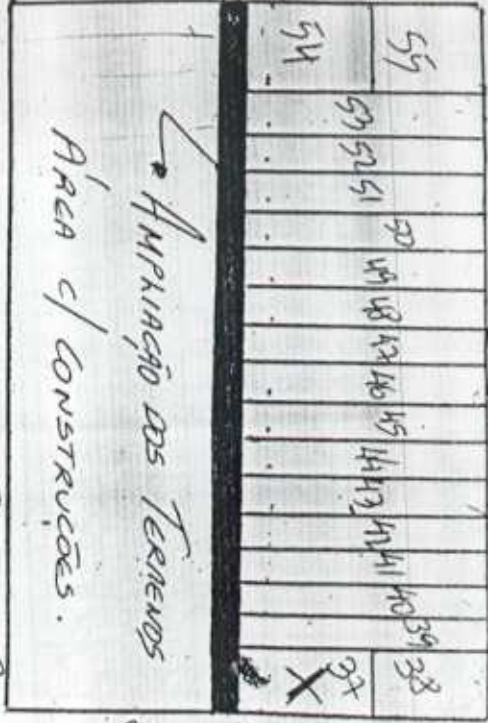 55
54
53 52 51 50 49 48 47 46 45 44 43 42 41 40 39
38
37
X
AMPLIAÇÃO DOS TERRENOS
ÁREA C/ CONSTRUÇÕES.